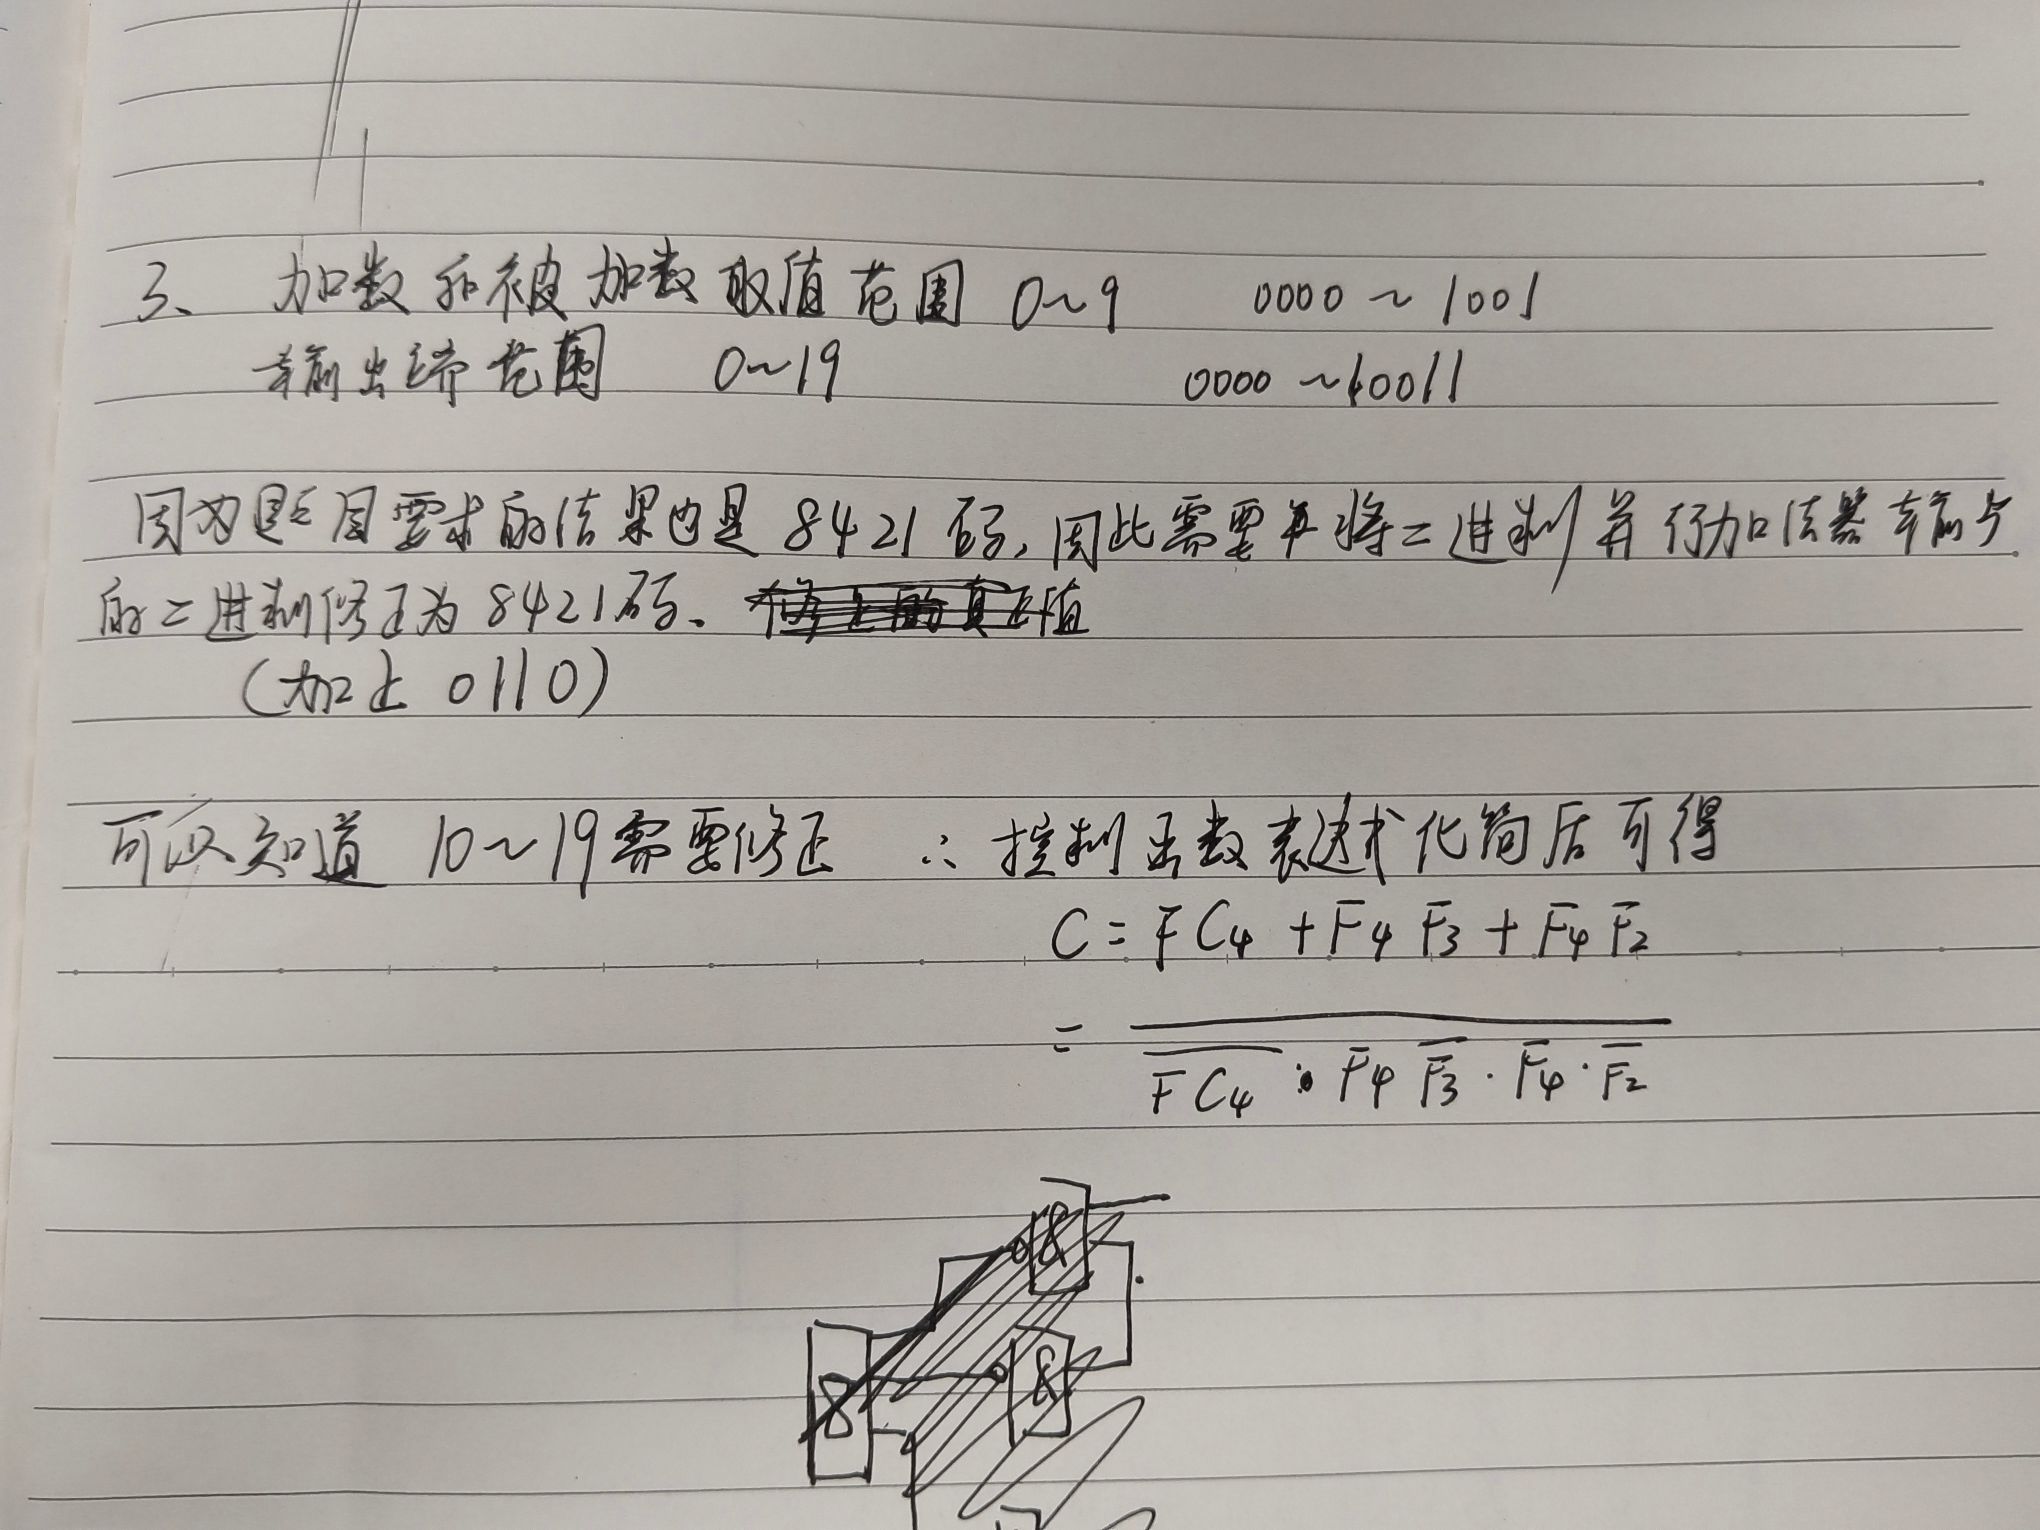 3、 加数和被加数取值范围 0~9 0000 ~ 1001
输出 范围 0~19 0000 ~10011
因为题目要求的结果也是 8421 码,因此需要再将二进制并行加法器输出
的二进制修正为 8421码、
(加上 0110)
可以知道 10~19需要修正 ∴ 控制函数表达式化简后可得
C = FC₄ + F₄ F₃ + F₄ F₂
= \overline{\overline{FC₄} · F₄ \overline{F₃} · F₄ · \overline{F₂}}
&
&
&